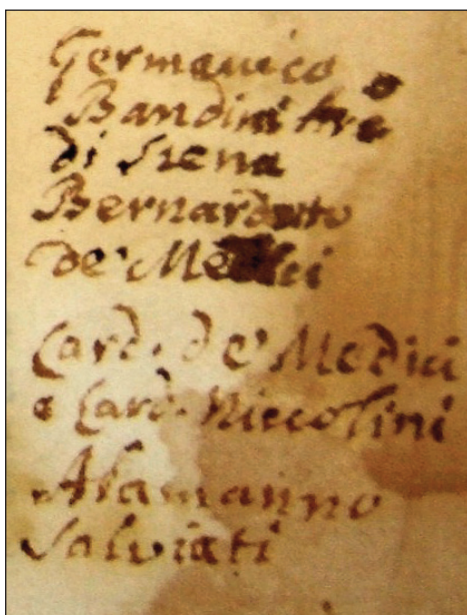 Germanico
Bandini
di Siena
Bernardetto
de' Medici
Card. de' Medici
e Card. Niccolini
Alamanno
Salviati